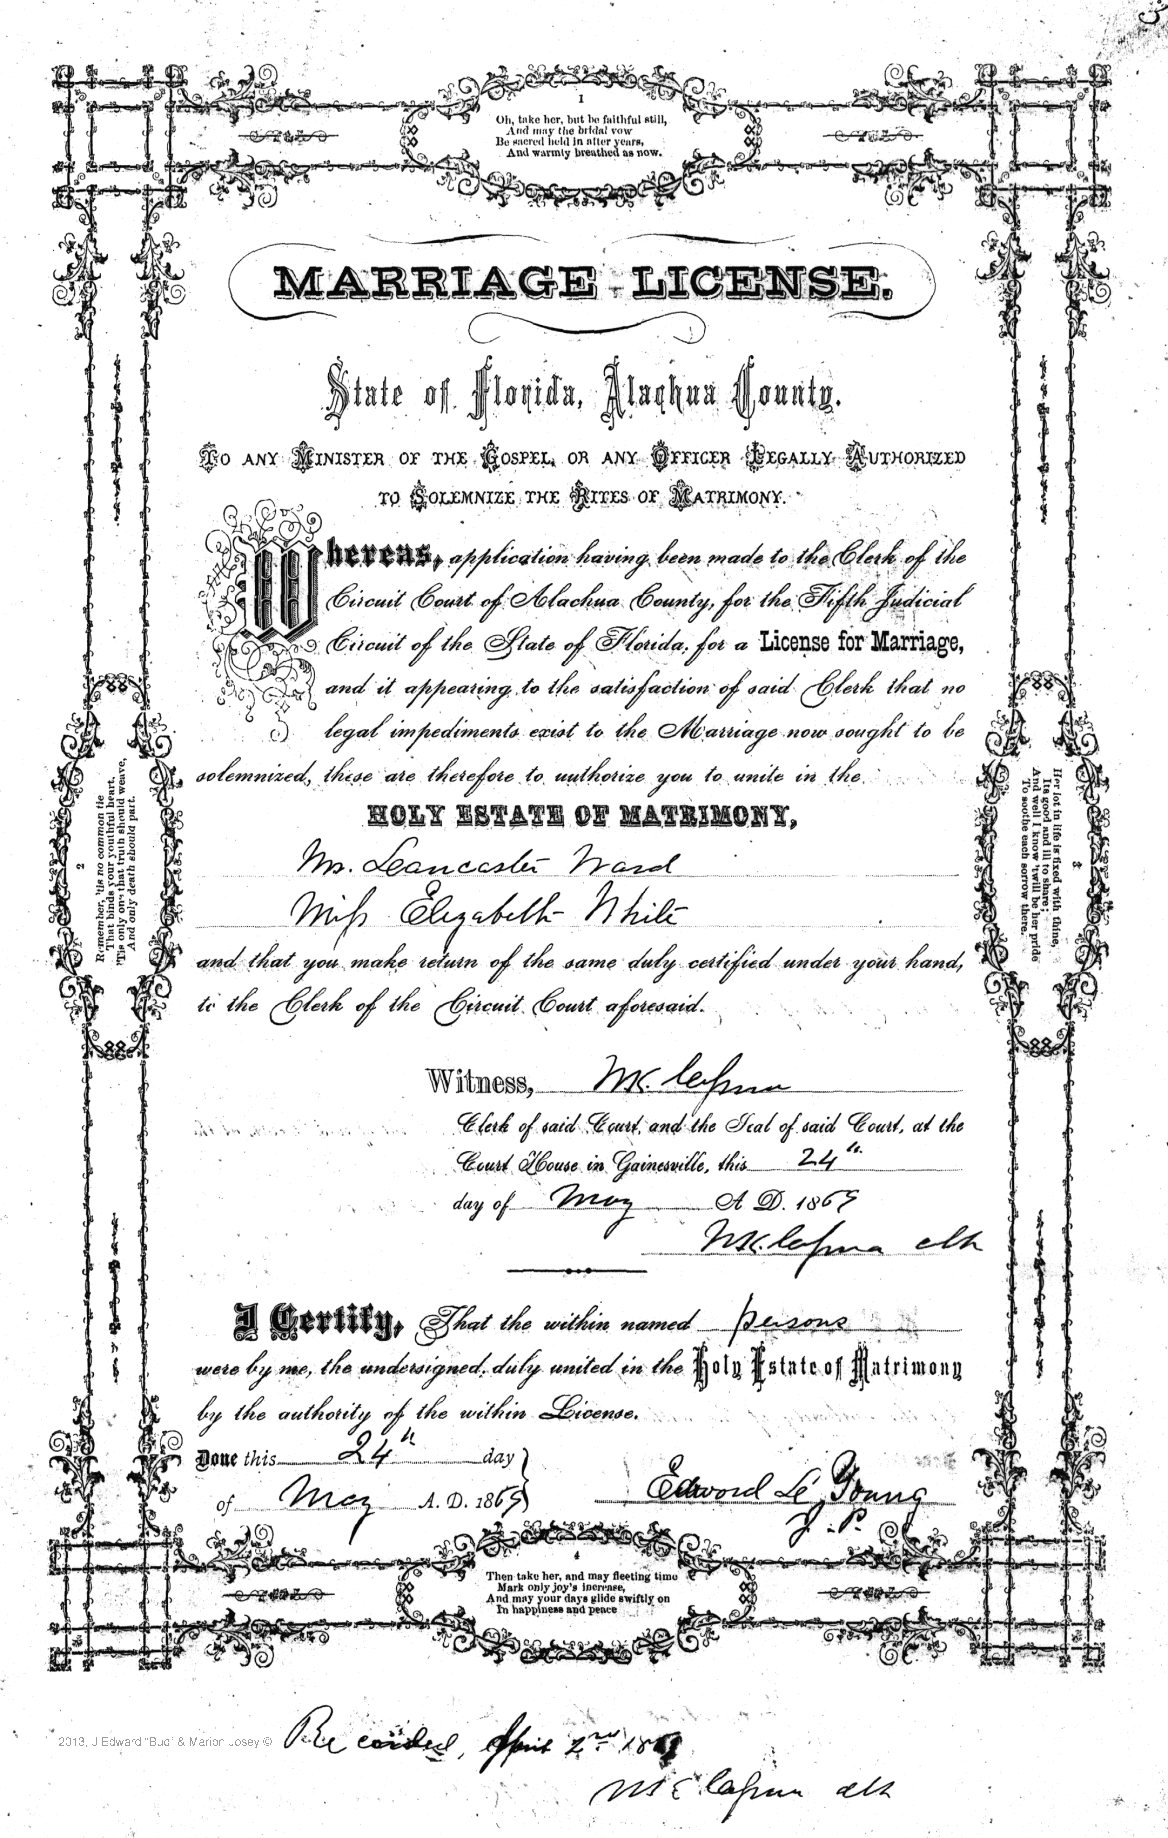 1
Oh, take her, but be faithful still,
And may the bridal vow
Be sacred held in after years,
And warmly breathed as now.
MARRIAGE LICENSE.
State of Florida, Alachua County.
TO ANY MINISTER OF THE GOSPEL, OR ANY OFFICER LEGALLY AUTHORIZED
TO SOLEMNIZE THE RITES OF MATRIMONY.
Whereas, application having been made to the Clerk of the
Circuit Court of Alachua County, for the Fifth Judicial
Circuit of the State of Florida, for a License for Marriage,
and it appearing to the satisfaction of said Clerk that no
legal impediments exist to the Marriage now sought to be
solemnized, these are therefore to authorize you to unite in the
HOLY ESTATE OF MATRIMONY,
Mr. Leancaster Ward
Miss Elizabeth White
and that you make return of the same duly certified under your hand,
to the Clerk of the Circuit Court aforesaid.
2
Remember, 'tis no common tie
That binds your youthful heart,
'Tis only one that truth should weave,
And only death should part.
3
Her lot in life is fixed with thine,
Its good and ill to share;
And well I know 'twill be her pride
To soothe each sorrow there.
Witness,
Clerk of said Court, and the Seal of said Court, at the
Court House in Gainesville, this 24th
day of May A D. 1869
clk
I Certify, That the within named persons
were by me, the undersigned, duly united in the Holy Estate of Matrimony
by the authority of the within License.
Done this 24th day
of May A. D. 1869
Edword Le Young
J. P.
4
Then take her, and may fleeting time
Mark only joy's increase,
And may your days glide swiftly on
In happiness and peace
2013, J Edward "Bud" & Marion Josey ©
Recorded, April 2nd
clk